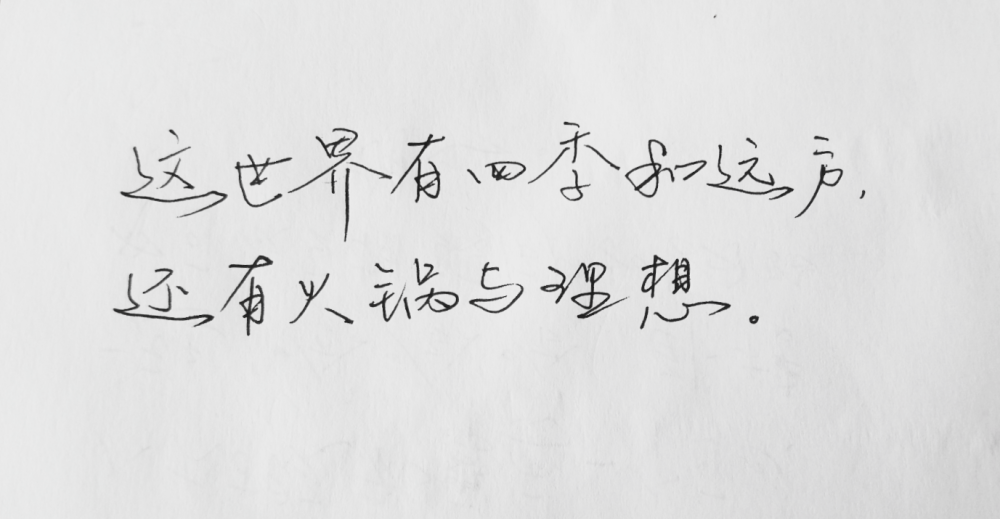 这世界有四季和远方,
还有火锅与理想。